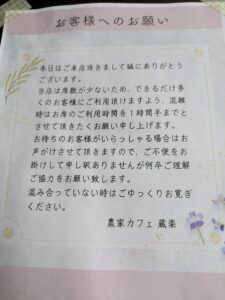 お客様へのお願い
本日はご来店頂きまして誠にありがとう
ございます。
当店は席数が少ないため、できるだけ多
くのお客様にご利用頂けますよう、混雑
時はお席のご利用時間を1時間半までと
させて頂きたくお願い申し上げます。
お待ちのお客様がいらっしゃる場合はお
声がけさせて頂きますので、ご不便をお
掛けして申し訳ありませんが何卒ご理解
ご協力をお願い致します。
混み合っていない時はごゆっくりお寛ぎ
ください。
農家カフェ 蔵楽